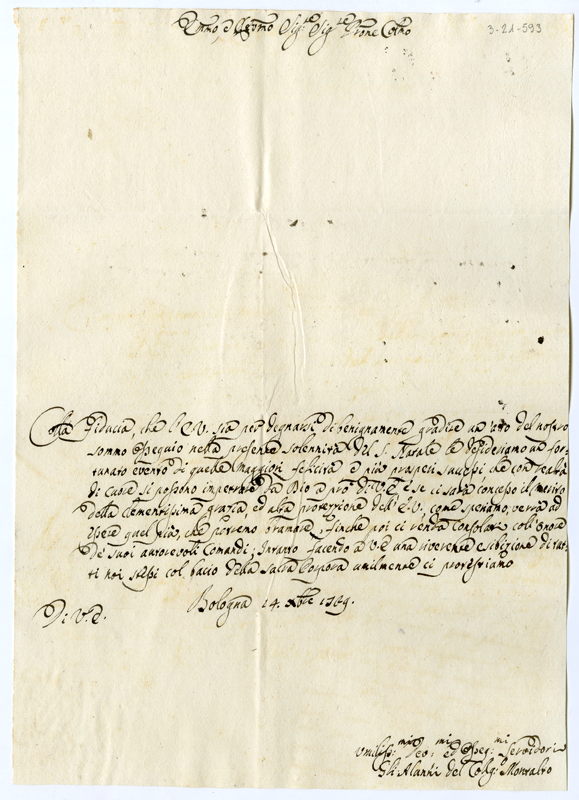 3-21-593
Emo e Rmo Sig.re Sig.re Prone Colmo
Colla fiducia, che l'E.V. sia per degnarsi di benignamente gradire un atto del nostro
sommo ossequio nella presente solennità del S. Natale le desideriamo un for-
tunato evento di quelle maggiori felicità e più prosperi successi che con realtà
di cuore si possono impetrare da Dio a prò di V.E. e se ci sarà concesso il merito
della clementissima grazia, ed alta protezione dell'E.V., come speriamo, verrà ad
essere quel più, che potremo bramare, finche poi ci renda consolati coll'onore
de' suoi autorevoli Comandi, Intanto facendo a V.E. una riverente esibizione di tut-
ti noi stessi col bacio della Sacra Porpora umilmente ci protestiamo
Di V.E. Bologna 14. Xbre 1749.
Umiliss:mi Devo:mi ed Osseq:mi Servidori
Gli Alunni del Collg:o Montalto